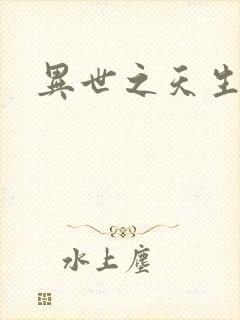 異世之天生
水上塵